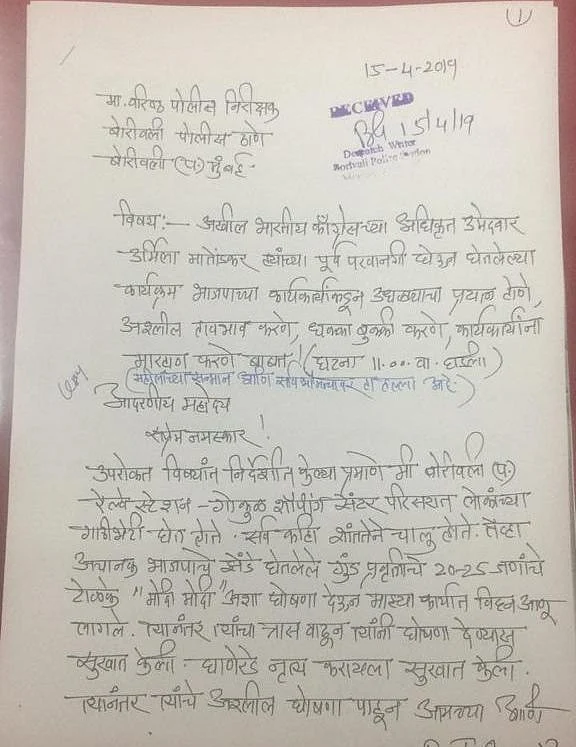 1
15-4-2019
मा. वरिष्ठ पोलीस निरीक्षक
बोरीवली पोलीस ठाणे
बोरीवली (प) मुंबई.
RECEIVED
15/4/19
Despatch Writer
Borivali Police Station
विषय:- अखील भारतीय काँग्रेसच्या अधिकृत उमेदवार
उर्मिला मातोंडकर ह्यांच्या पूर्व परवानगी घेऊन घेतलेल्या
कार्यक्रम भाजपाच्या कार्यकर्त्यांकडून उधळण्याचा प्रयत्न होणे,
अश्लील हावभाव करणे, धक्का बुक्की करणे, कार्यकर्त्यांना
मारहाण करणे बाबत! (घटना 11.00 वा. घडली)
(महीलांच्या सन्मान आणि हा हल्ला आहे.)
आदरणीय महोदय
सप्रेम नमस्कार!
उपरोक्त विषयांत निर्देशीत केल्या प्रमाणे मी बोरीवली (प.)
रेल्वे स्टेशन - गोकुळ शॉपींग सेंटर परिसरात लोकांच्या
गाठीभेटी घेत होते. सर्व काही शांततेने चालु होते. तेव्हा
अचानक भाजपाचे झेंडे घेतलेले गुंड प्रवृत्तीचे 20-25 जणांचे
टोळके "मोदी मोदी" अशा घोषणा देऊन माझ्या कार्यात विघ्न आणू
लागले. त्यानंतर त्यांचा त्रास वाढून त्यांनी घोषणा देण्यास
सुरवात केली. घाणेरडे नृत्य करायला सुरवात केली.
त्यानंतर त्यांचे अश्लील घोषणा पाहून आमच्या